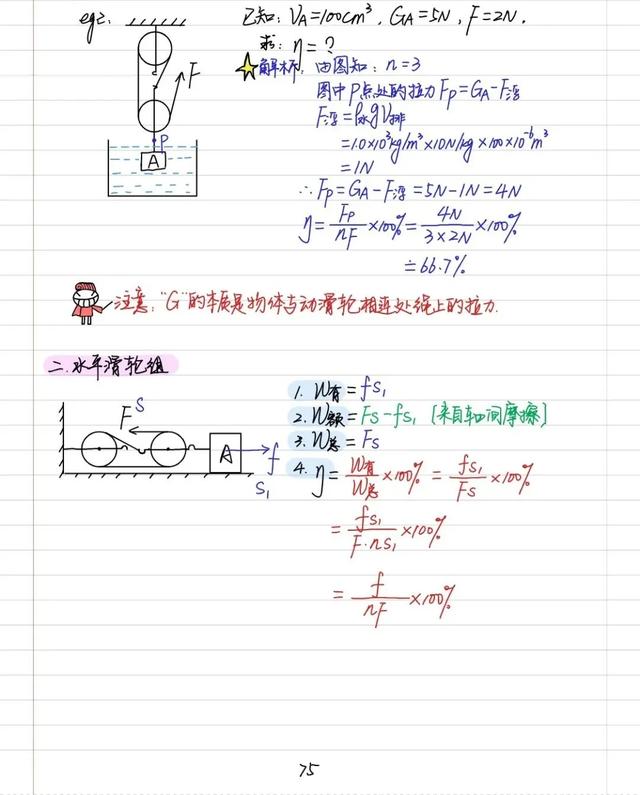 eg2. 已知: V_A=100cm³, G_A=5N, F=2N.
求: η=?
解析: 由图知: n=3
图中P点处的拉力F_P=G_A-F_浮
F_浮=ρ_水gV_排
=1.0×10³kg/m³×10N/kg×100×10⁻⁶m³
=1N
∴F_P=G_A-F_浮=5N-1N=4N
η=F_P/nF×100%=4N/3×2N×100%
≐66.7%
F
P
A
注意: "G"的本质是物体与动滑轮相连处绳上的拉力.
二.水平滑轮组
F S
A f
S₁
1. W_有=fs₁
2. W_额=Fs-fs₁ [来自轴间摩擦]
3. W_总=Fs
4. η=W_有/W_总×100%=fs₁/Fs×100%
=fs₁/F·ns₁×100%
=f/nF×100%
75